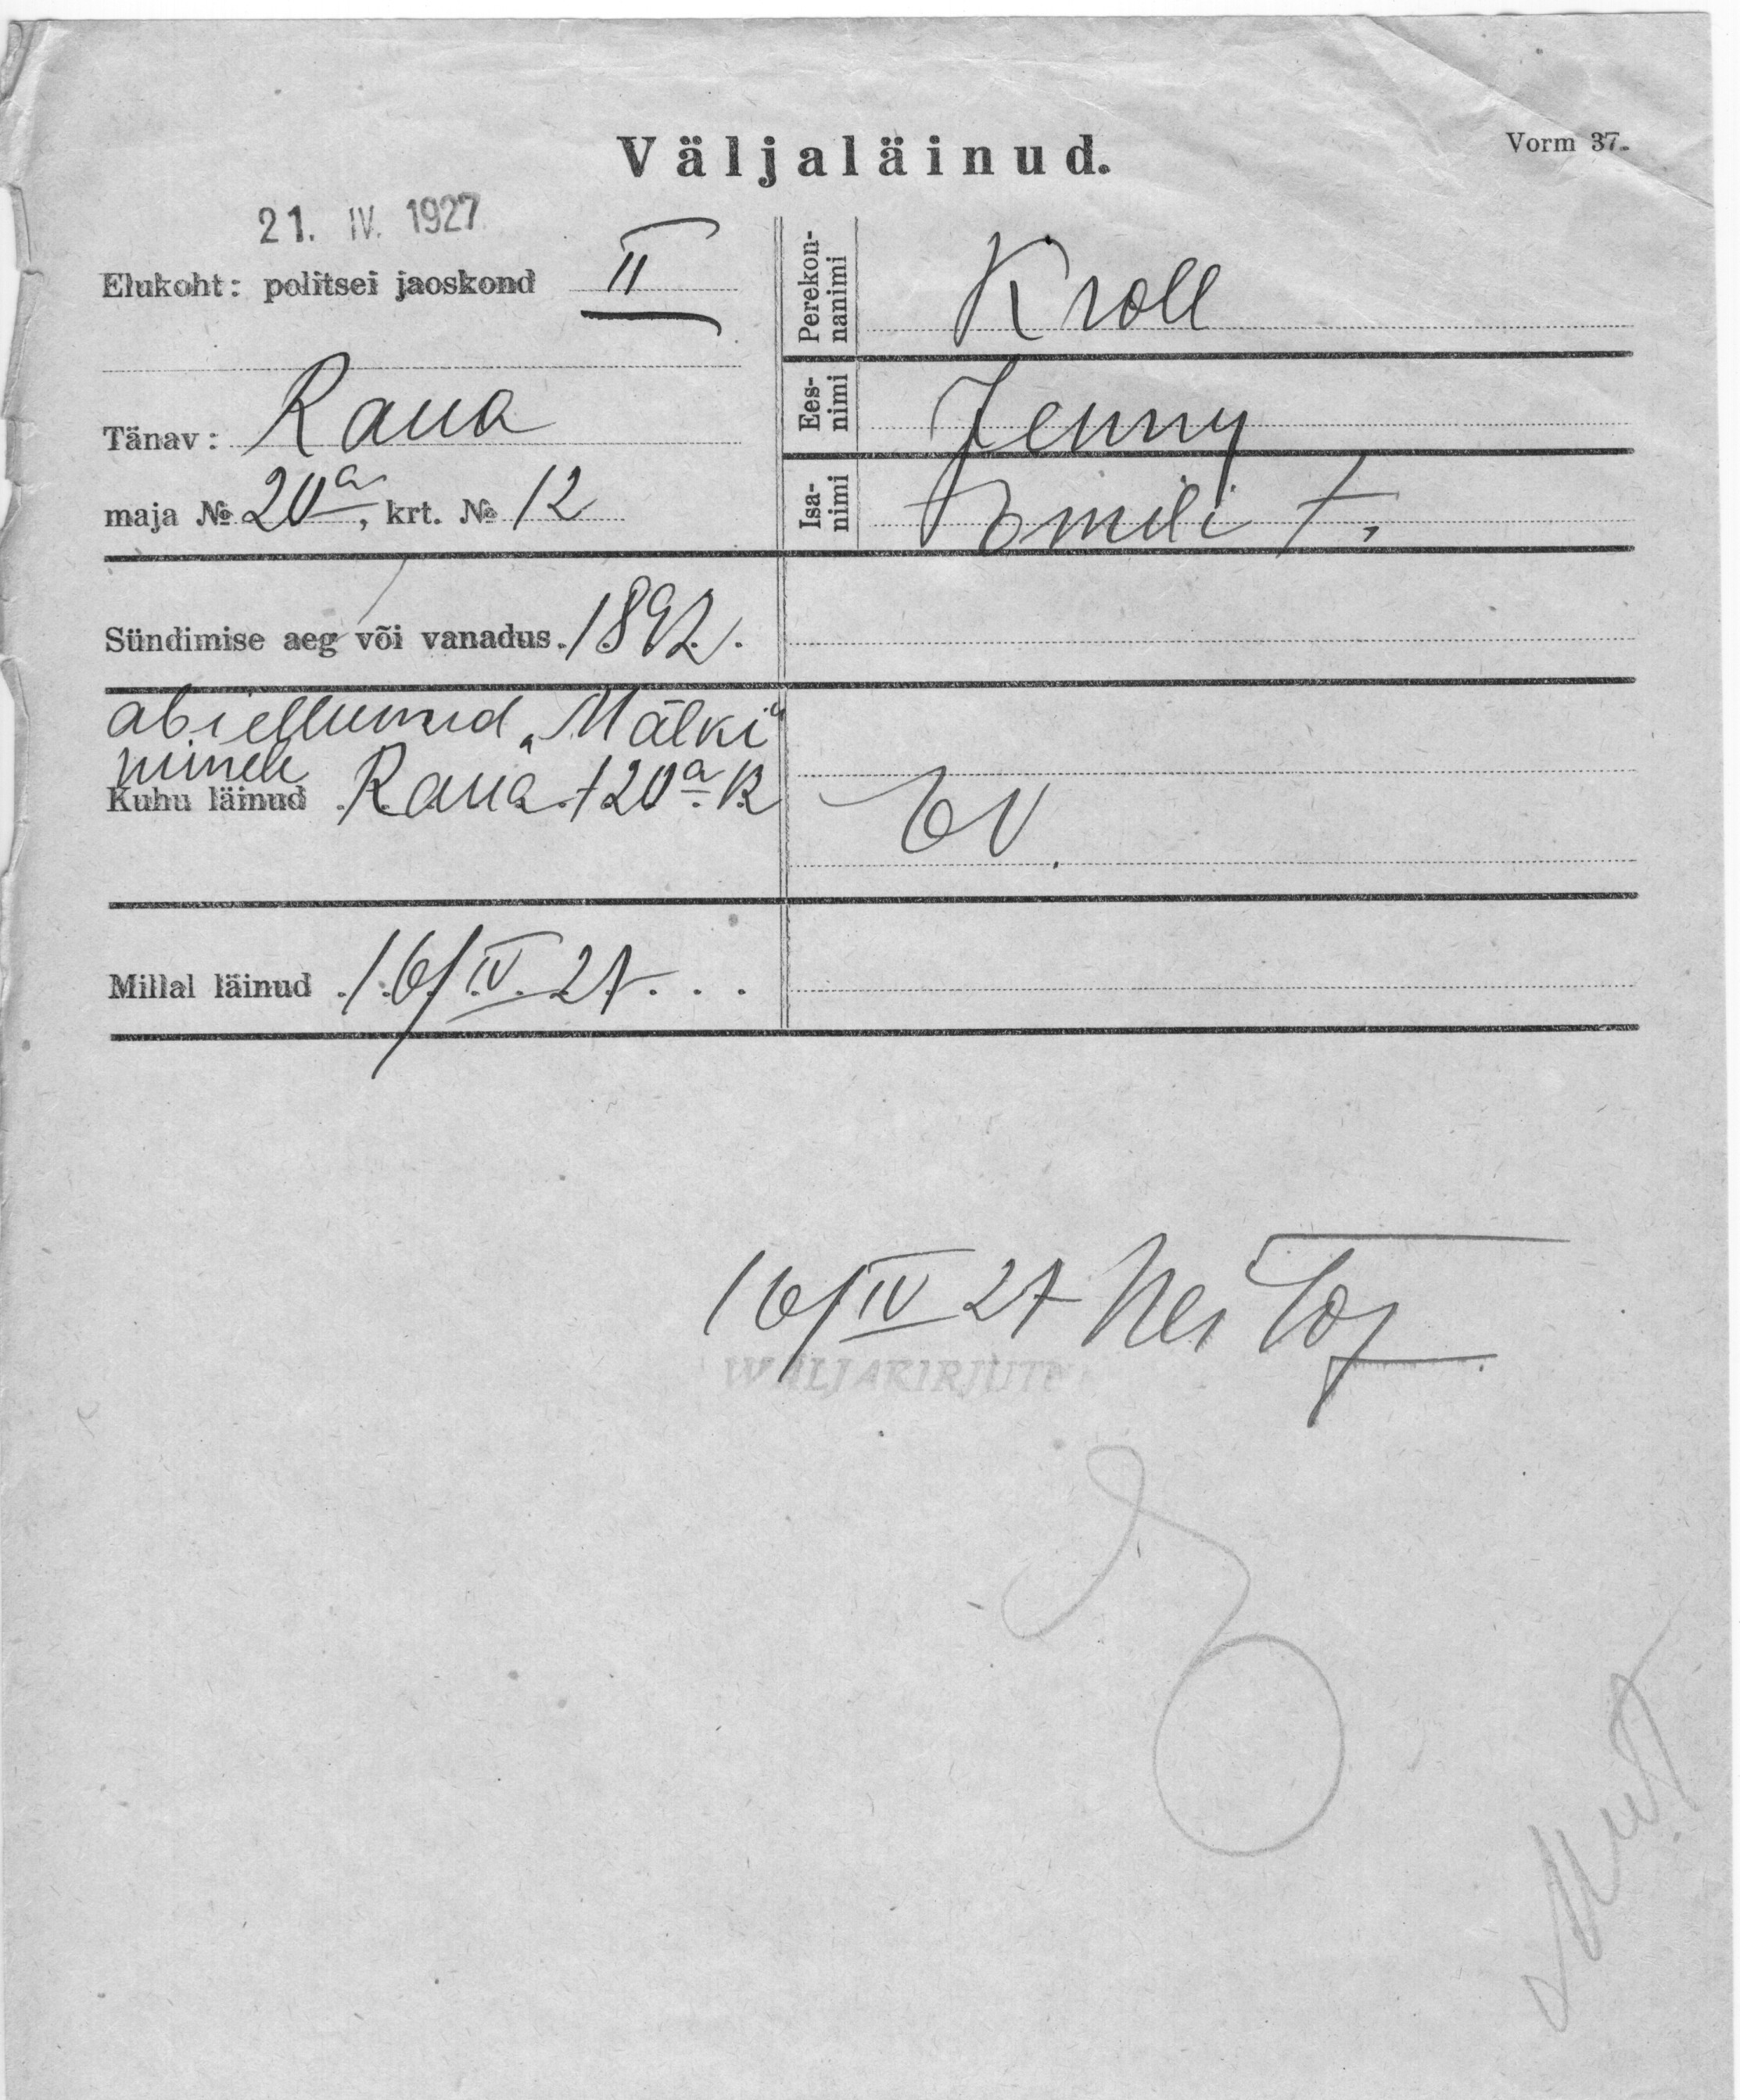 Väljaläinud.
Vorm 37.
21. IV. 1927
Elukoht: politsei jaoskond II
Tänav: Raua
maja № 20a, krt. № 12
Perekon-
nanimi
Kroll
Ees-
nimi
Jenny
Isa-
nimi
Emili t.
Sündimise aeg või vanadus. 1892.
abiellunud „Mälki“
nimele
Kuhu läinud Raua t 20a. 12
EV.
Millal läinud 16/IV. 27.
16/IV 27
WÄLJAKIRJUT